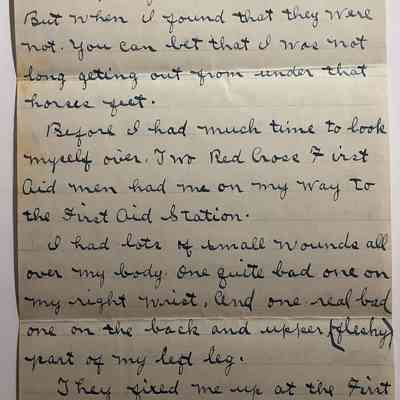 But when I found that they were
not. You can bet that I was not
long geting out from under that
horses feet.
Before I had much time to look
myself over. Two Red Cross First
Aid men had me on my way to
the First Aid Station.
I had lots of small wounds all
over my body. One quite bad one on
my right wrist, and one real bad
one on the back and upper (fleshy)
part of my left leg.
They fixed me up at the First